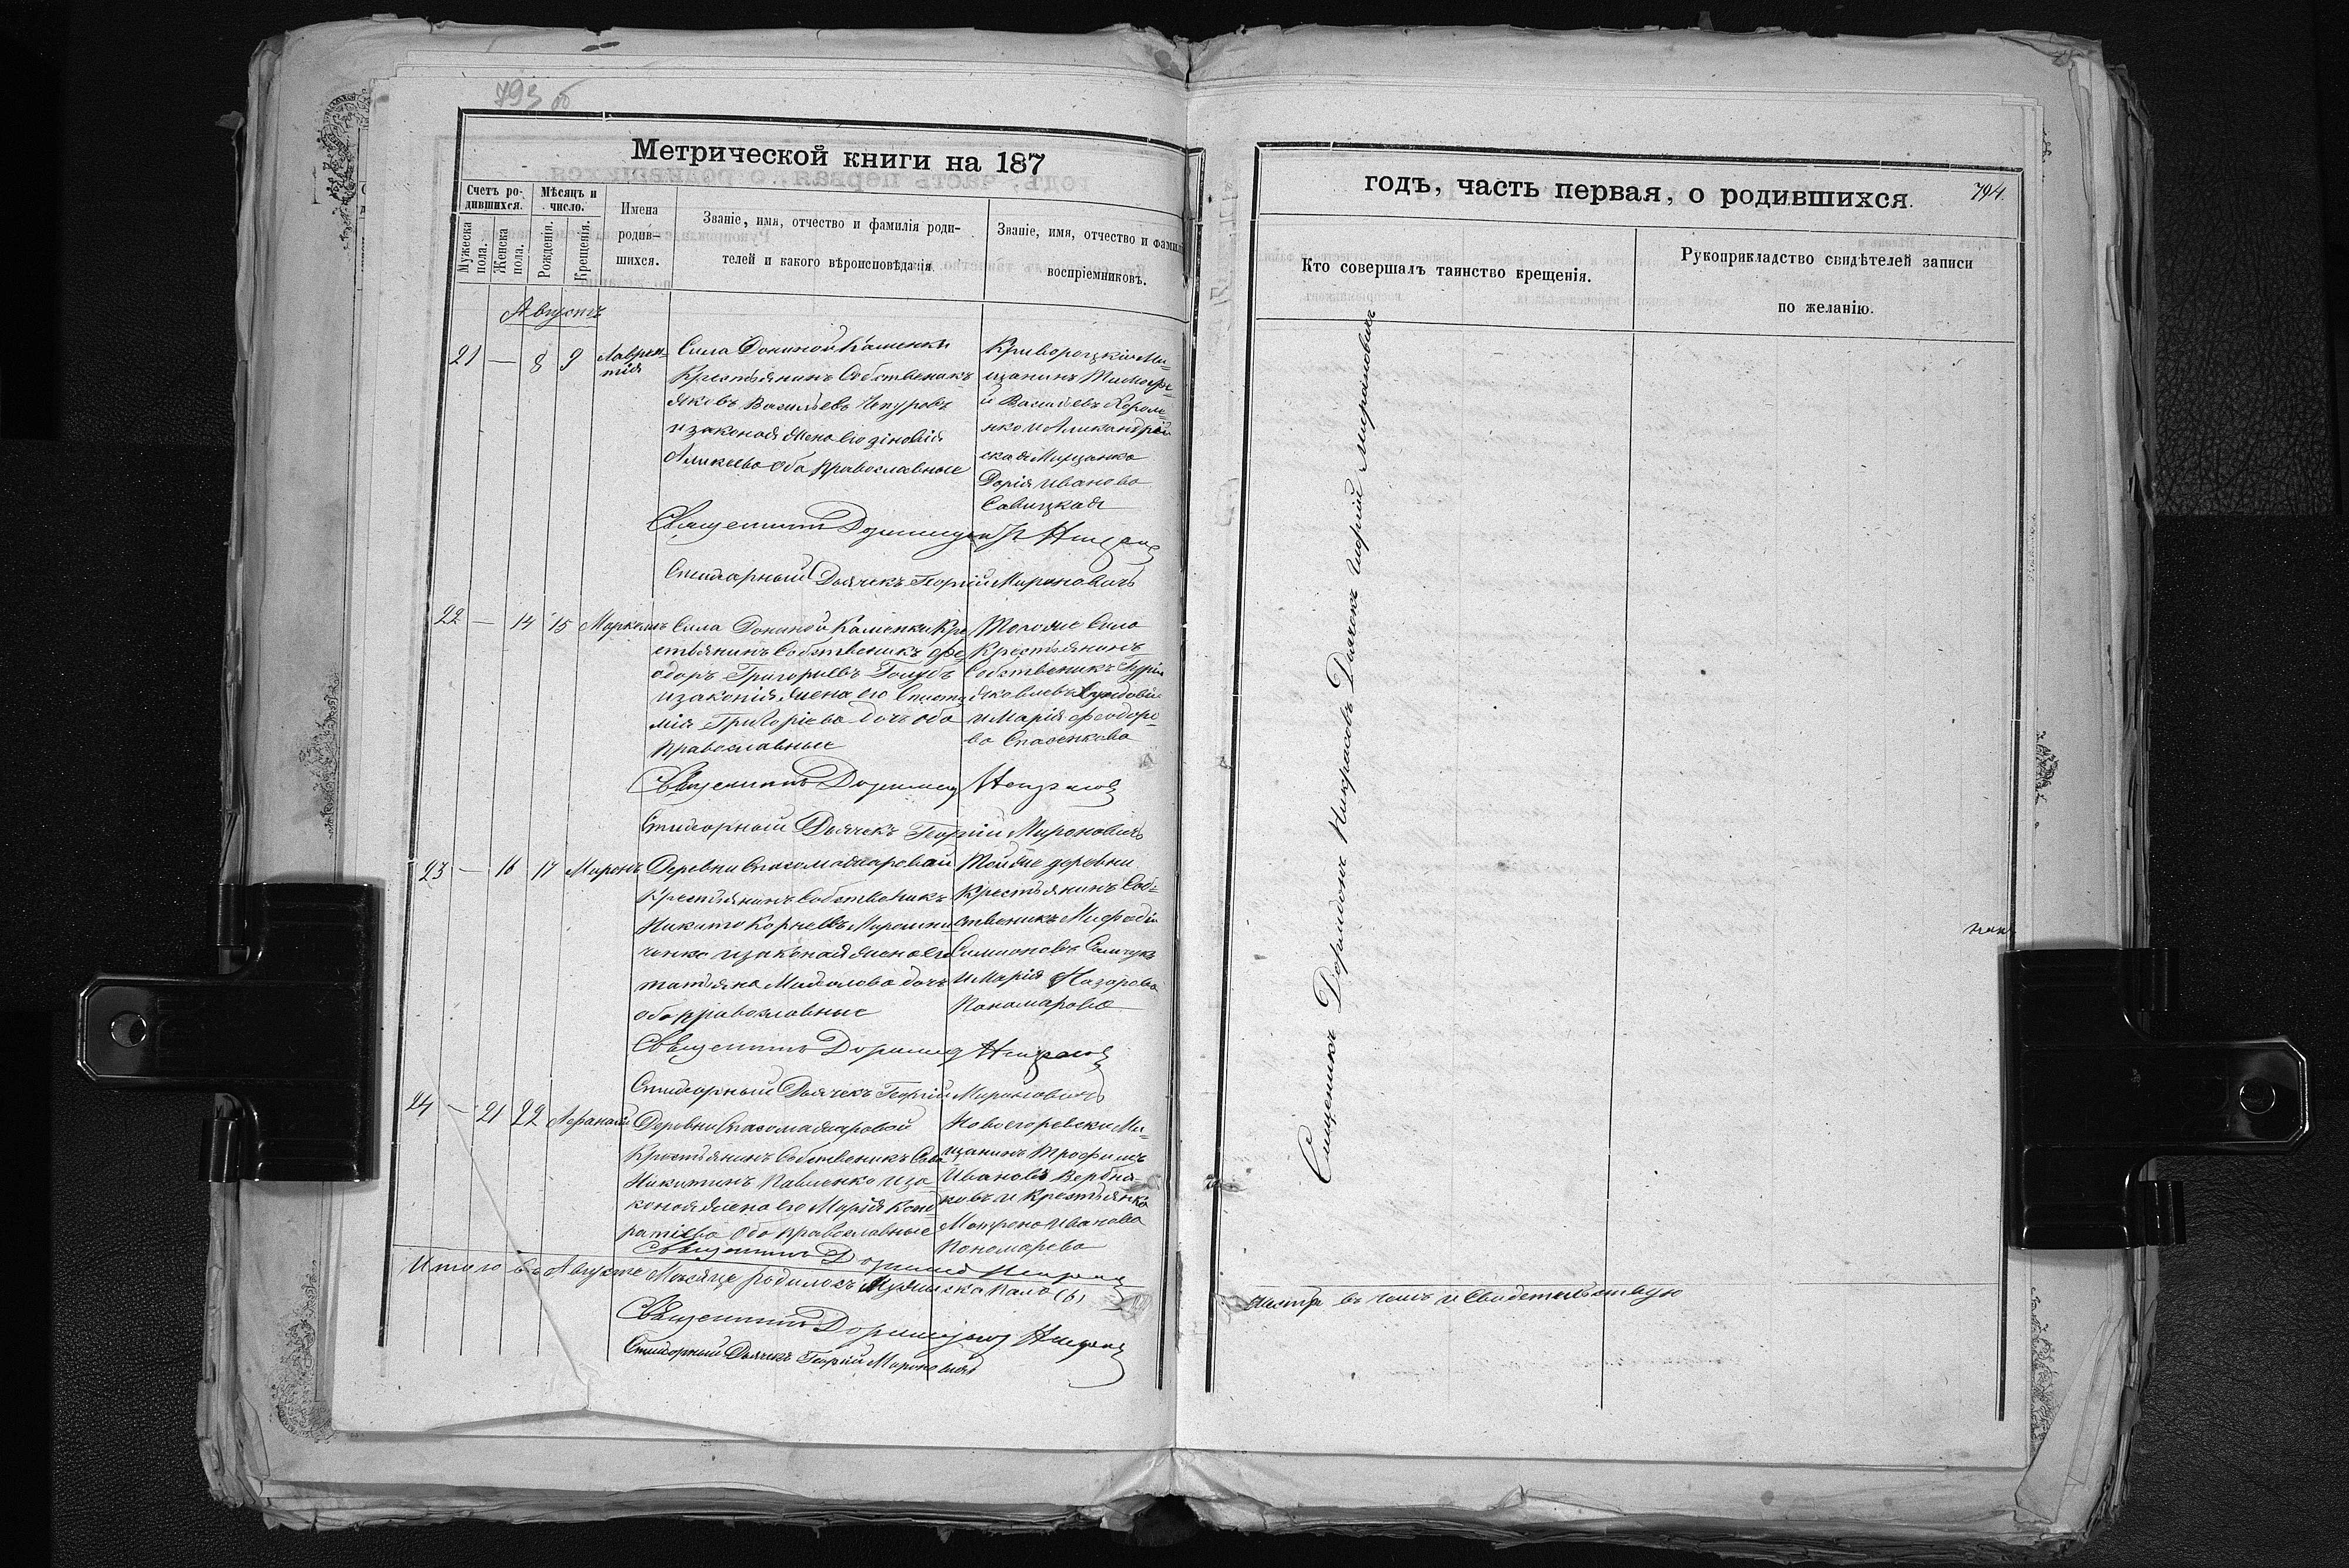 793 об
Метрической книги на 187
Счетъ ро-
дившихся.
Мѣсяцъ и
число.
Мужеска
пола.
Женска
пола.
Рожденія.
Крещенія.
Имена
родив-
шихся.
Званіе, имя, отчество и фамилія роди-
телей и какого вѣроисповѣданія
Званіе, имя, отчество и фамил
воспріемниковъ.
Августъ
21 — 8 9 Лаврен-
тія
Села Дониной Каменки
Крестьянинъ Собственикъ
Яковъ Васильевъ Чепуровъ
и законая жена его Зіновія
Алиеева оба православные
Криворожскій Ме-
щанинъ Тимофе-
й Васильевъ
нко и Аликандрій
ская Мещанка
Дарія Иванова
Савицкая
Священникъ
Стихарный Дьячекъ Георгій Мироновичъ
22 — 14 15 Маркелъ
Села Дониной Каменки Кре
стьянинъ Собственикъ Фе
одоръ Григорьевъ Голубъ
и законія жена его
мія Григоріева дочь оба
православные
Тогоже Села
Крестьянинъ
Собственикъ Гурій
Яковлевъ
и Марія Феодоро-
ва Спасенкова
Священникъ
Стихарный Дьячекъ Георгій Мироновичъ
23 — 16 17 Миронъ
Деревни Спасомажаровай
Крестьянинъ Собственикъ
Никита Корнеевъ Мирошни
ченко и законая жена его
татьяна Михалова дочь
оба православные
Тойже деревни
Крестьянинъ Соб-
ственикъ Мефодій
Симионовъ Самчукъ
и Марія Назарова
Панамарова
Священникъ
Стихарный Дьячекъ Георгій Мироновичъ
24 — 21 22 Афанасій
Деревни Спасомажаровой
Крестьянинъ Собственикъ Сава
Никитинъ Павленко и за-
коная жена его Марія Кон-
ратіева оба православные
Новоегоревски Ме-
щанинъ Трофимъ
Ивановъ Вербня-
ковъ и Крестьянка
Матрона Иванова
Пономарева
Священникъ
Итого въ Августе Месяце родилось Мужеска пала (6)
Священникъ
Стихарный Дьячекъ Георгій Мироновичъ
годъ, часть первая, о родившихся.
794.
Кто совершалъ таинство крещенія.
Рукоприкладство свидѣтелей записи
по желанію.
Священикъ Доримедонъ Никрасовъ Дьячекъ Георгій Мироновичъ
шесть въ чемъ и Свидетельствую